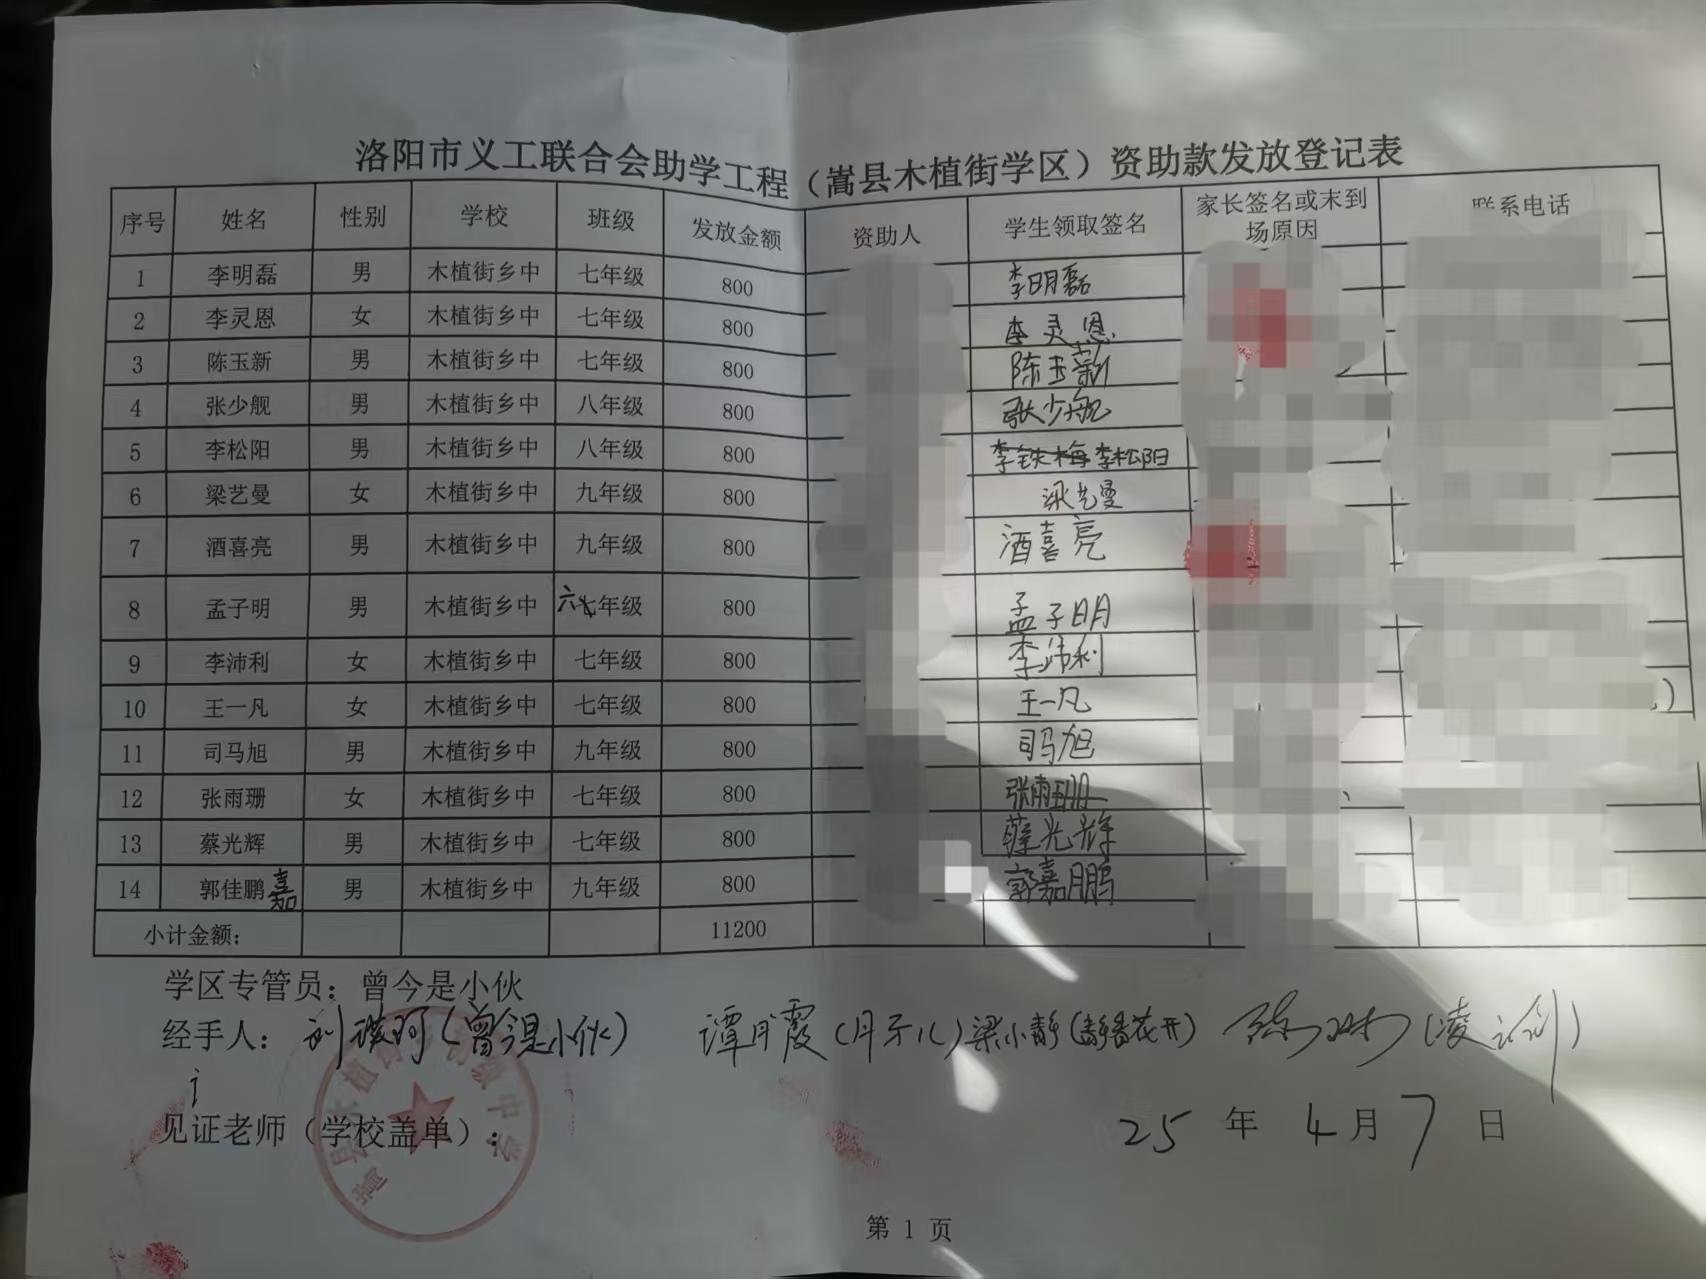 洛阳市义工联合会助学工程（嵩县木植街学区）资助款发放登记表
序号 姓名 性别 学校 班级 发放金额 资助人 学生领取签名 家长签名或未到场原因 联系电话
1 李明磊 男 木植街乡中 七年级 800 李明磊
2 李灵恩 女 木植街乡中 七年级 800 李灵恩
3 陈玉新 男 木植街乡中 七年级 800 陈玉新
4 张少舰 男 木植街乡中 八年级 800 张少舰
5 李松阳 男 木植街乡中 八年级 800 李铁梅 李松阳
6 梁艺曼 女 木植街乡中 九年级 800 梁艺曼
7 酒喜亮 男 木植街乡中 九年级 800 酒喜亮
8 孟子明 男 木植街乡中 六七年级 800 孟子明
9 李沛利 女 木植街乡中 七年级 800 李沛利
10 王一凡 女 木植街乡中 七年级 800 王一凡
11 司马旭 男 木植街乡中 九年级 800 司马旭
12 张雨珊 女 木植街乡中 七年级 800 张雨珊
13 蔡光辉 男 木植街乡中 七年级 800 蔡光辉
14 郭佳鹏 嘉 男 木植街乡中 九年级 800 郭嘉鹏
小计金额： 11200
学区专管员：曾今是小伙
经手人：（曾今是小伙） 谭月霞（月牙儿）梁小静（静香花开）
见证老师（学校盖单）：
25 年 4 月 7 日
第 1 页